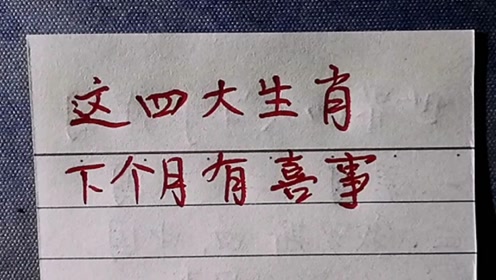 这四大生肖
下个月有喜事